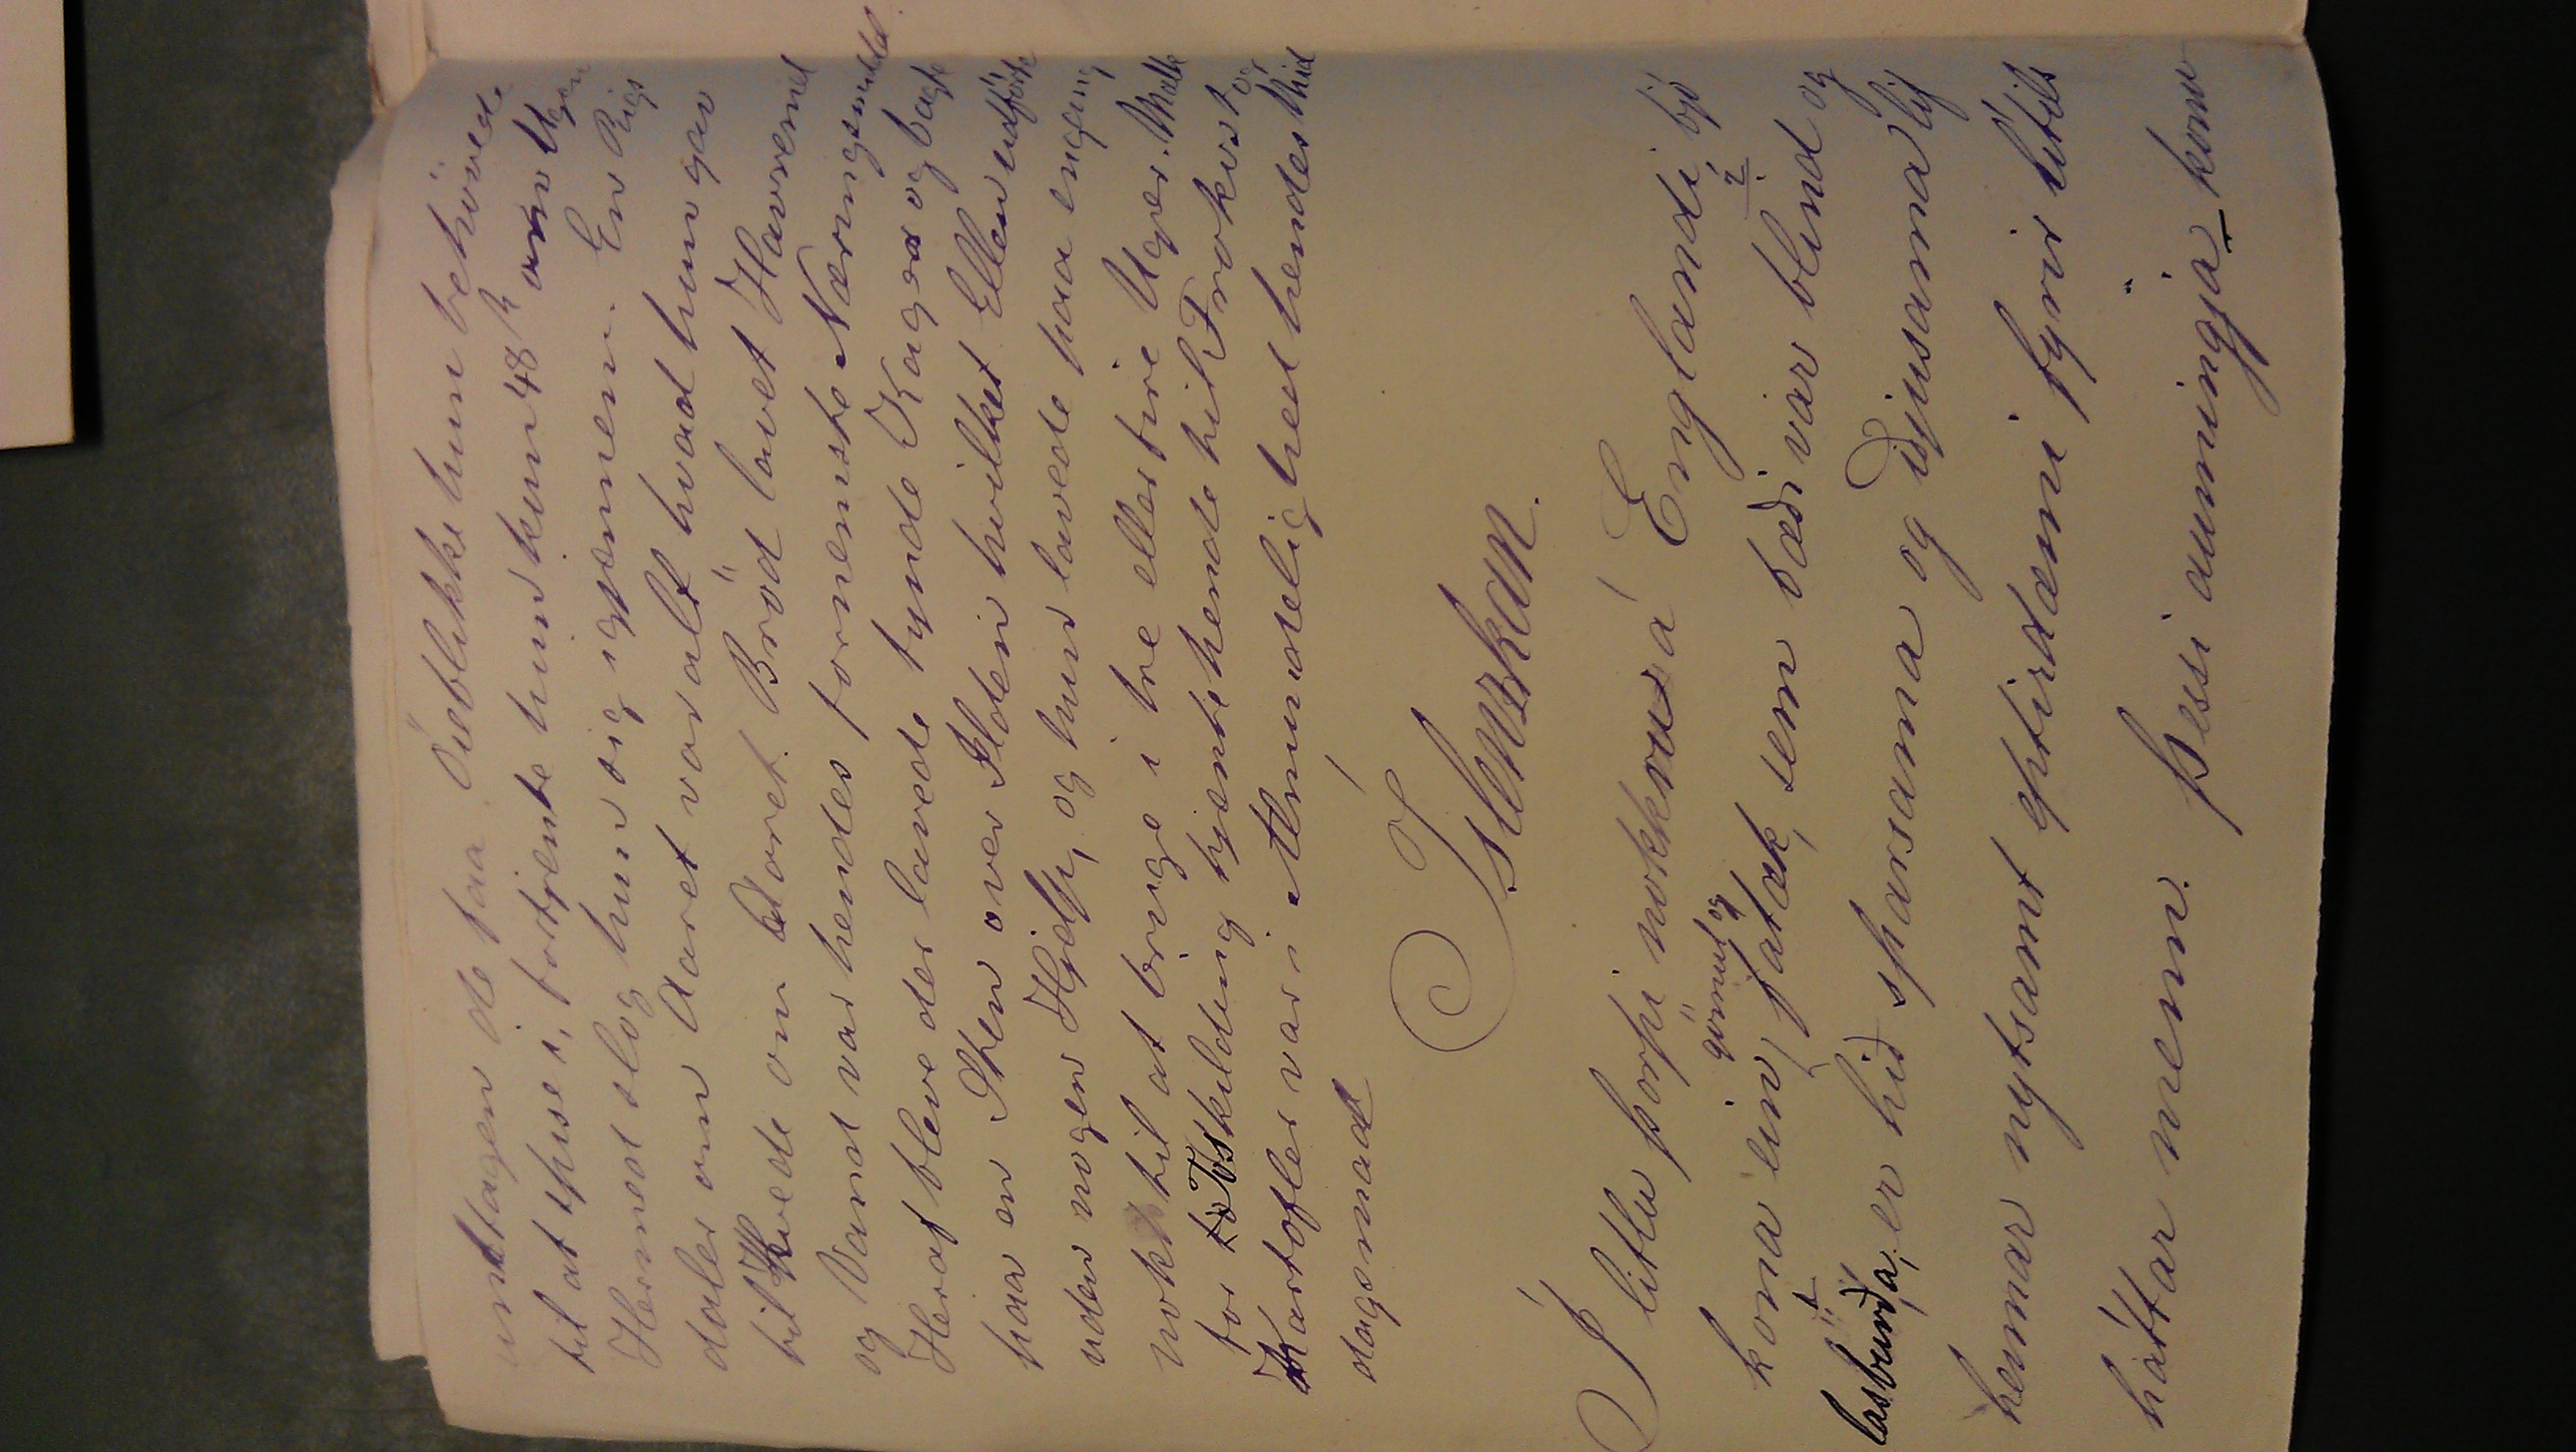 undtagen de faa Öieblikke hun behövede
til at spise i, fortjente hun kun 48 k om Ugen
Hermed slog hun sig igjennem. En Rigs
daler om Aaret var alt hvad hun gav
til Klæde om Aaret. Bröd lavet Havremel
og Vand var hendes fornemste Næringsmiddel
Heraf bleve der lavede tynde Kager og bagt
paa en Sten over Ilden hvilket Ellen udförte
uden nogen Hjelp, og hun lavede paa engang
nok til at bruge i tre eller fire Uger. Malk
for to Tskilding tjente hende til Frokost og
Kartofler var i Almindelighed hendes Mid
dagsmad
Íslenzkan.
Í litlu þorpi nokkru á Englandi bjó
kona ein gömul og fatæk, sem bæði var blind og
lasburða, er hið sparsama og iðjusama líf
hennar nytsamt eptirdæmi fyrir lítils
háttar menn. Þessi aumingja konu